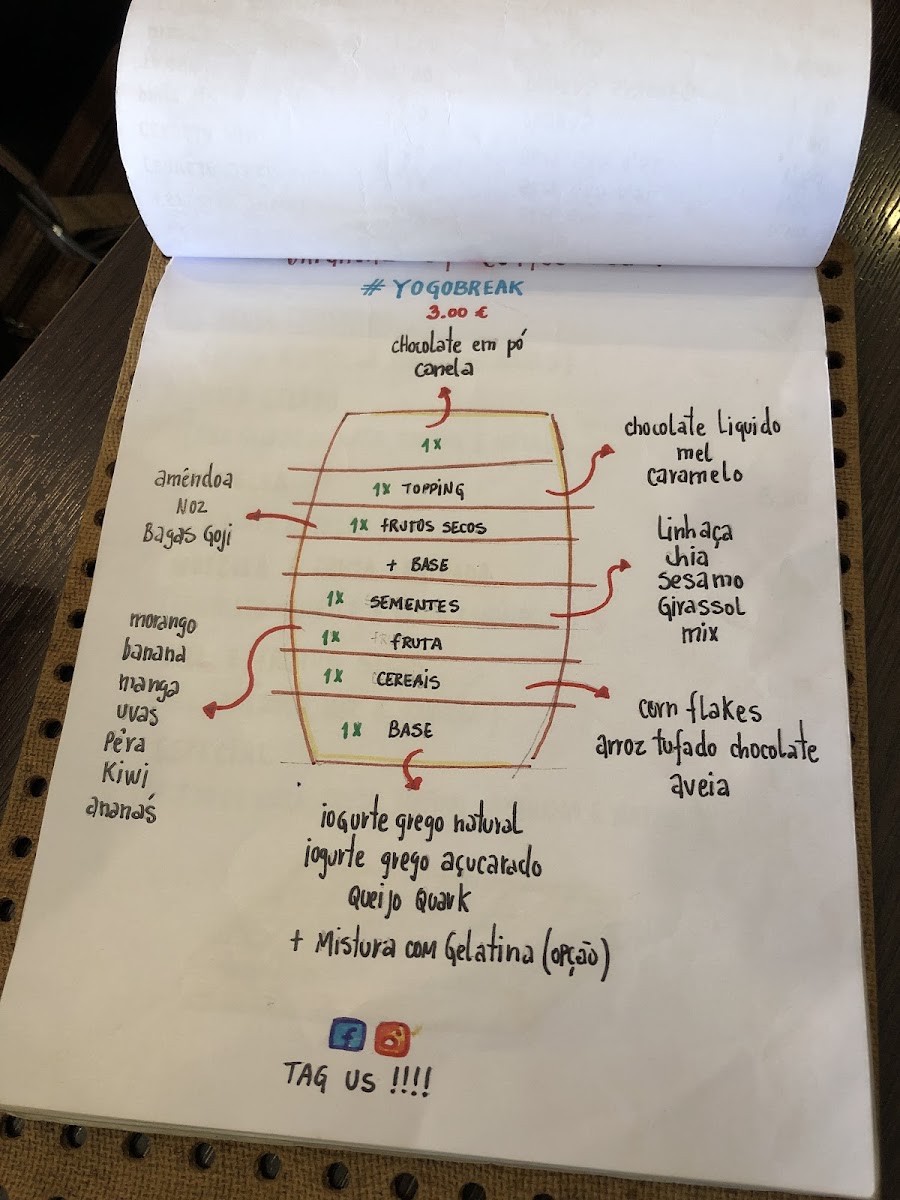 # YOGOBREAK
3.00 €
chocolate em pó
canela
1x
1x TOPPING
chocolate Liquido
mel
caramelo
1x FRUTOS SECOS
amêndoa
NOZ
Bagas Goji
+ BASE
1x SEMENTES
Linhaça
chia
sesamo
Girassol
mix
1x FRUTA
morango
banana
manga
uvas
Pêra
Kiwi
ananás
1x CEREAIS
corn flakes
arroz tufado chocolate
aveia
1x BASE
iogurte grego natural
iogurte grego açucarado
Queijo Quark
+ Mistura com Gelatina (opção)
f
TAG US !!!!